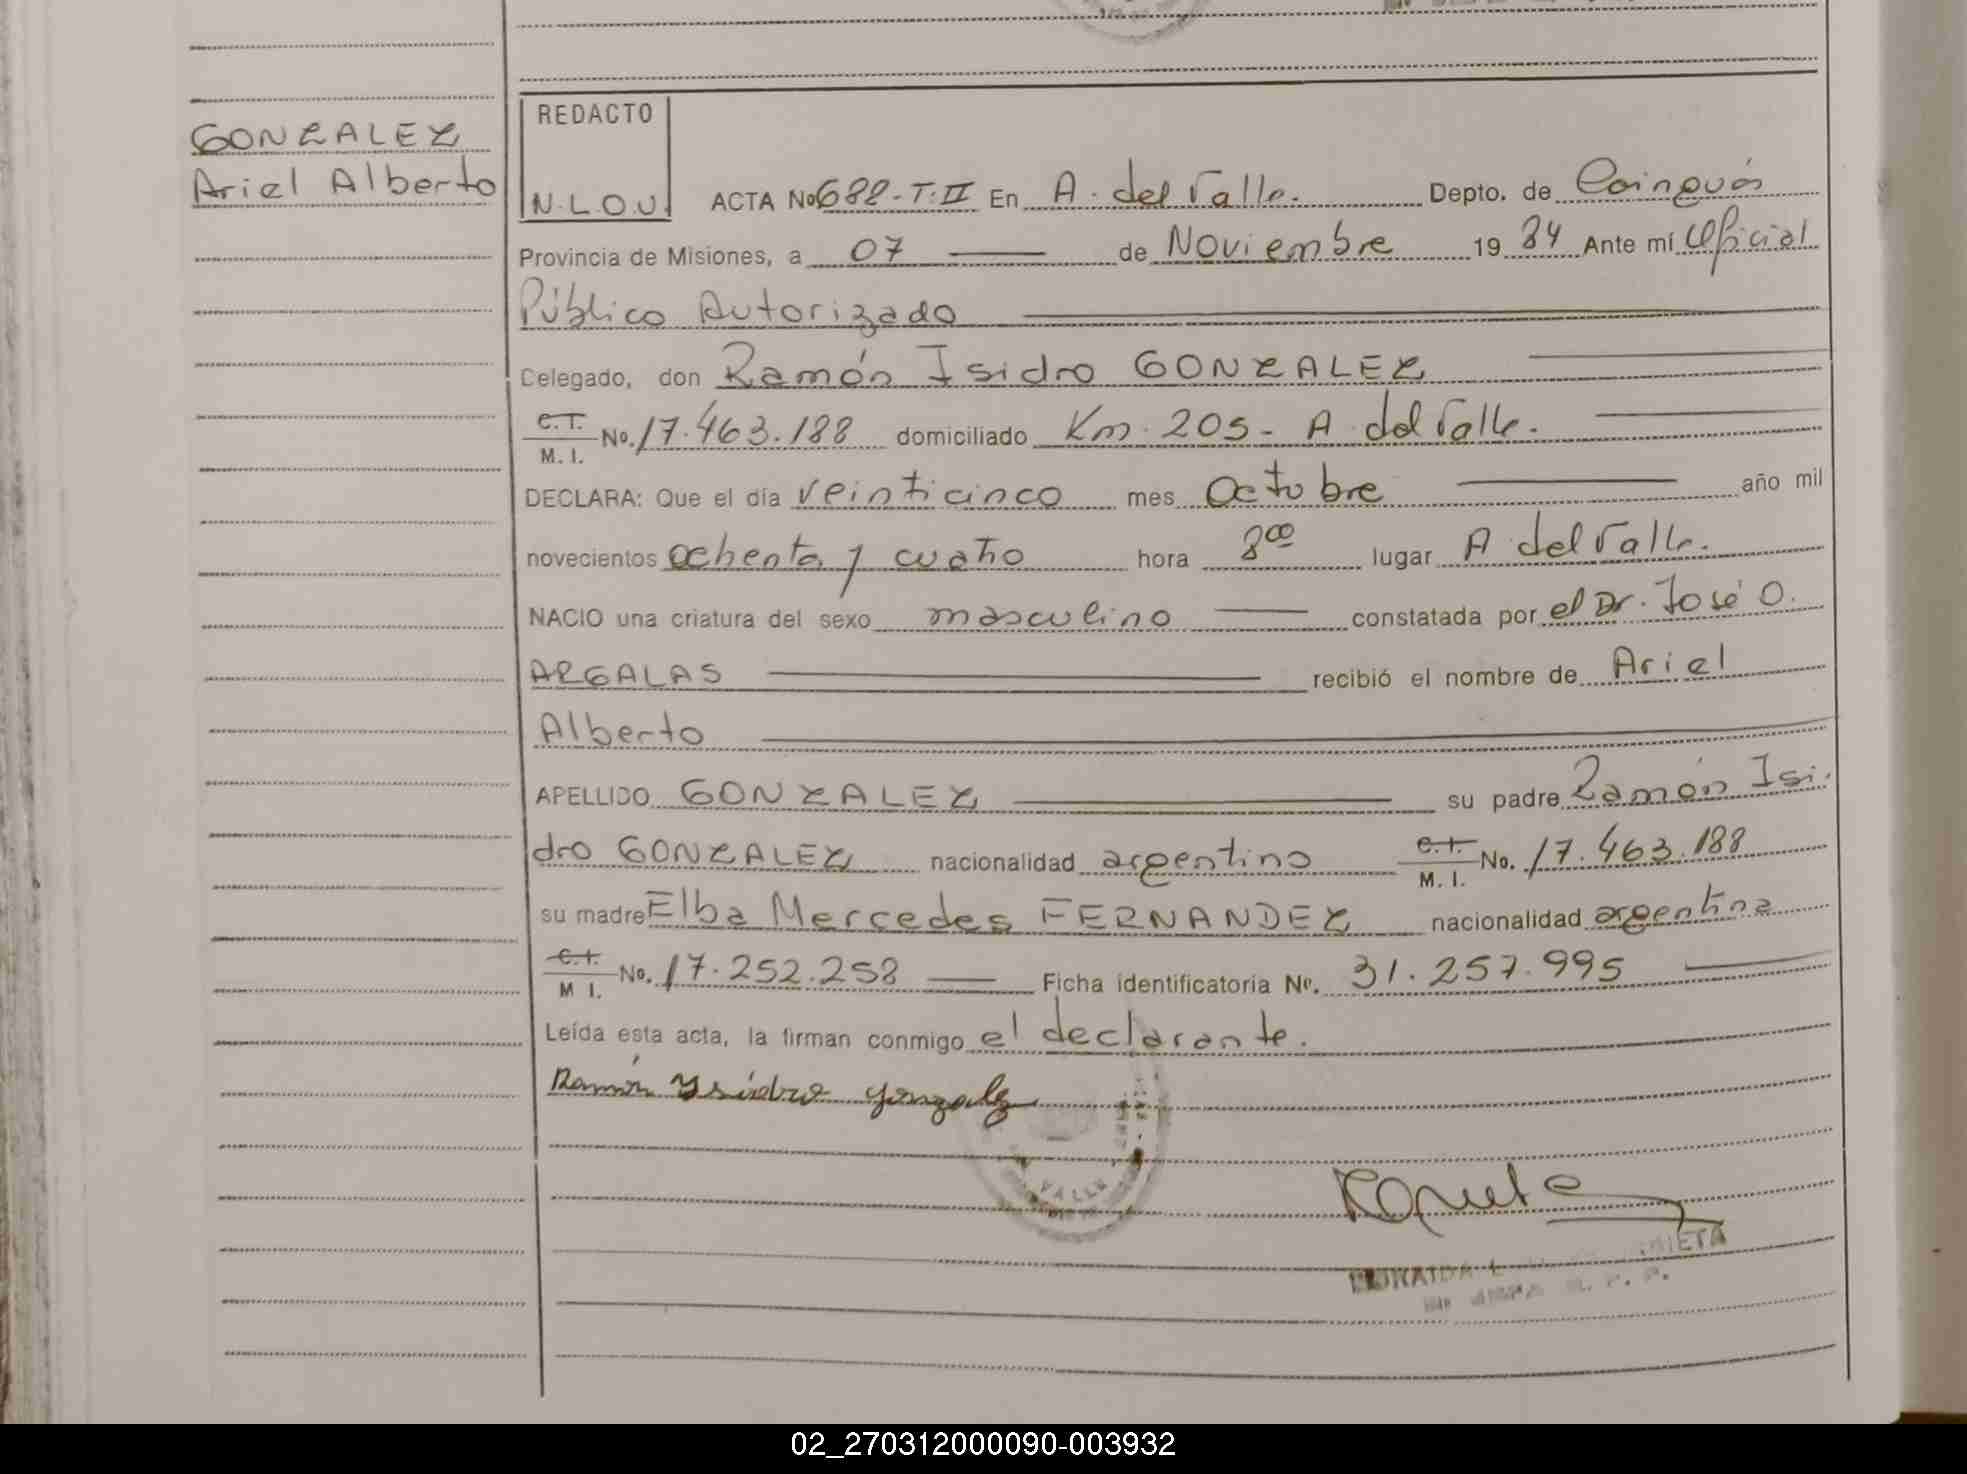 GONZALEZ
Ariel Alberto
REDACTO
N.L.O.U.
ACTA No 688-T.II En A. del Valle. Depto. de Cainguás
Provincia de Misiones, a 07 de Noviembre 19 84 Ante mí Oficial
Público Autorizado
Celegado, don Ramón Isidro GONZALEZ
C.I. M. I. No. 17.463.188 domiciliado Km. 205 - A. del Valle.
DECLARA: Que el día veinticinco mes Octubre año mil
novecientos ochenta y cuatro hora 8 00 lugar A. del Valle.
NACIO una criatura del sexo masculino constatada por el Dr. José O.
ARGALAS recibió el nombre de Ariel
Alberto
APELLIDO GONZALEZ su padre Ramón Isi-
dro GONZALEZ nacionalidad argentino C.I. M. I. No. 17.463.188
su madre Elba Mercedes FERNANDEZ nacionalidad argentina
C.I. M I. No. 17.252.258 Ficha identificatoria Nº. 31.257.995
Leída esta acta, la firman conmigo el declarante.
Ramón Ysidro Gonzalez
VALLE
02_270312000090-003932